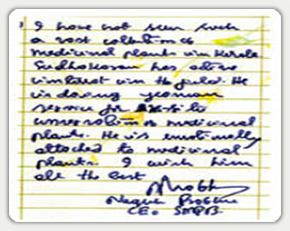 I have not seen such
a vast collection of
medicinal plants in Kerala.
Sudhakaran has active
interest in the field. He
is doing yeoman
service for
conservation medicinal
plants. He is emotionally
attached to medicinal
plants. I wish him
all the best
CEO SMPB